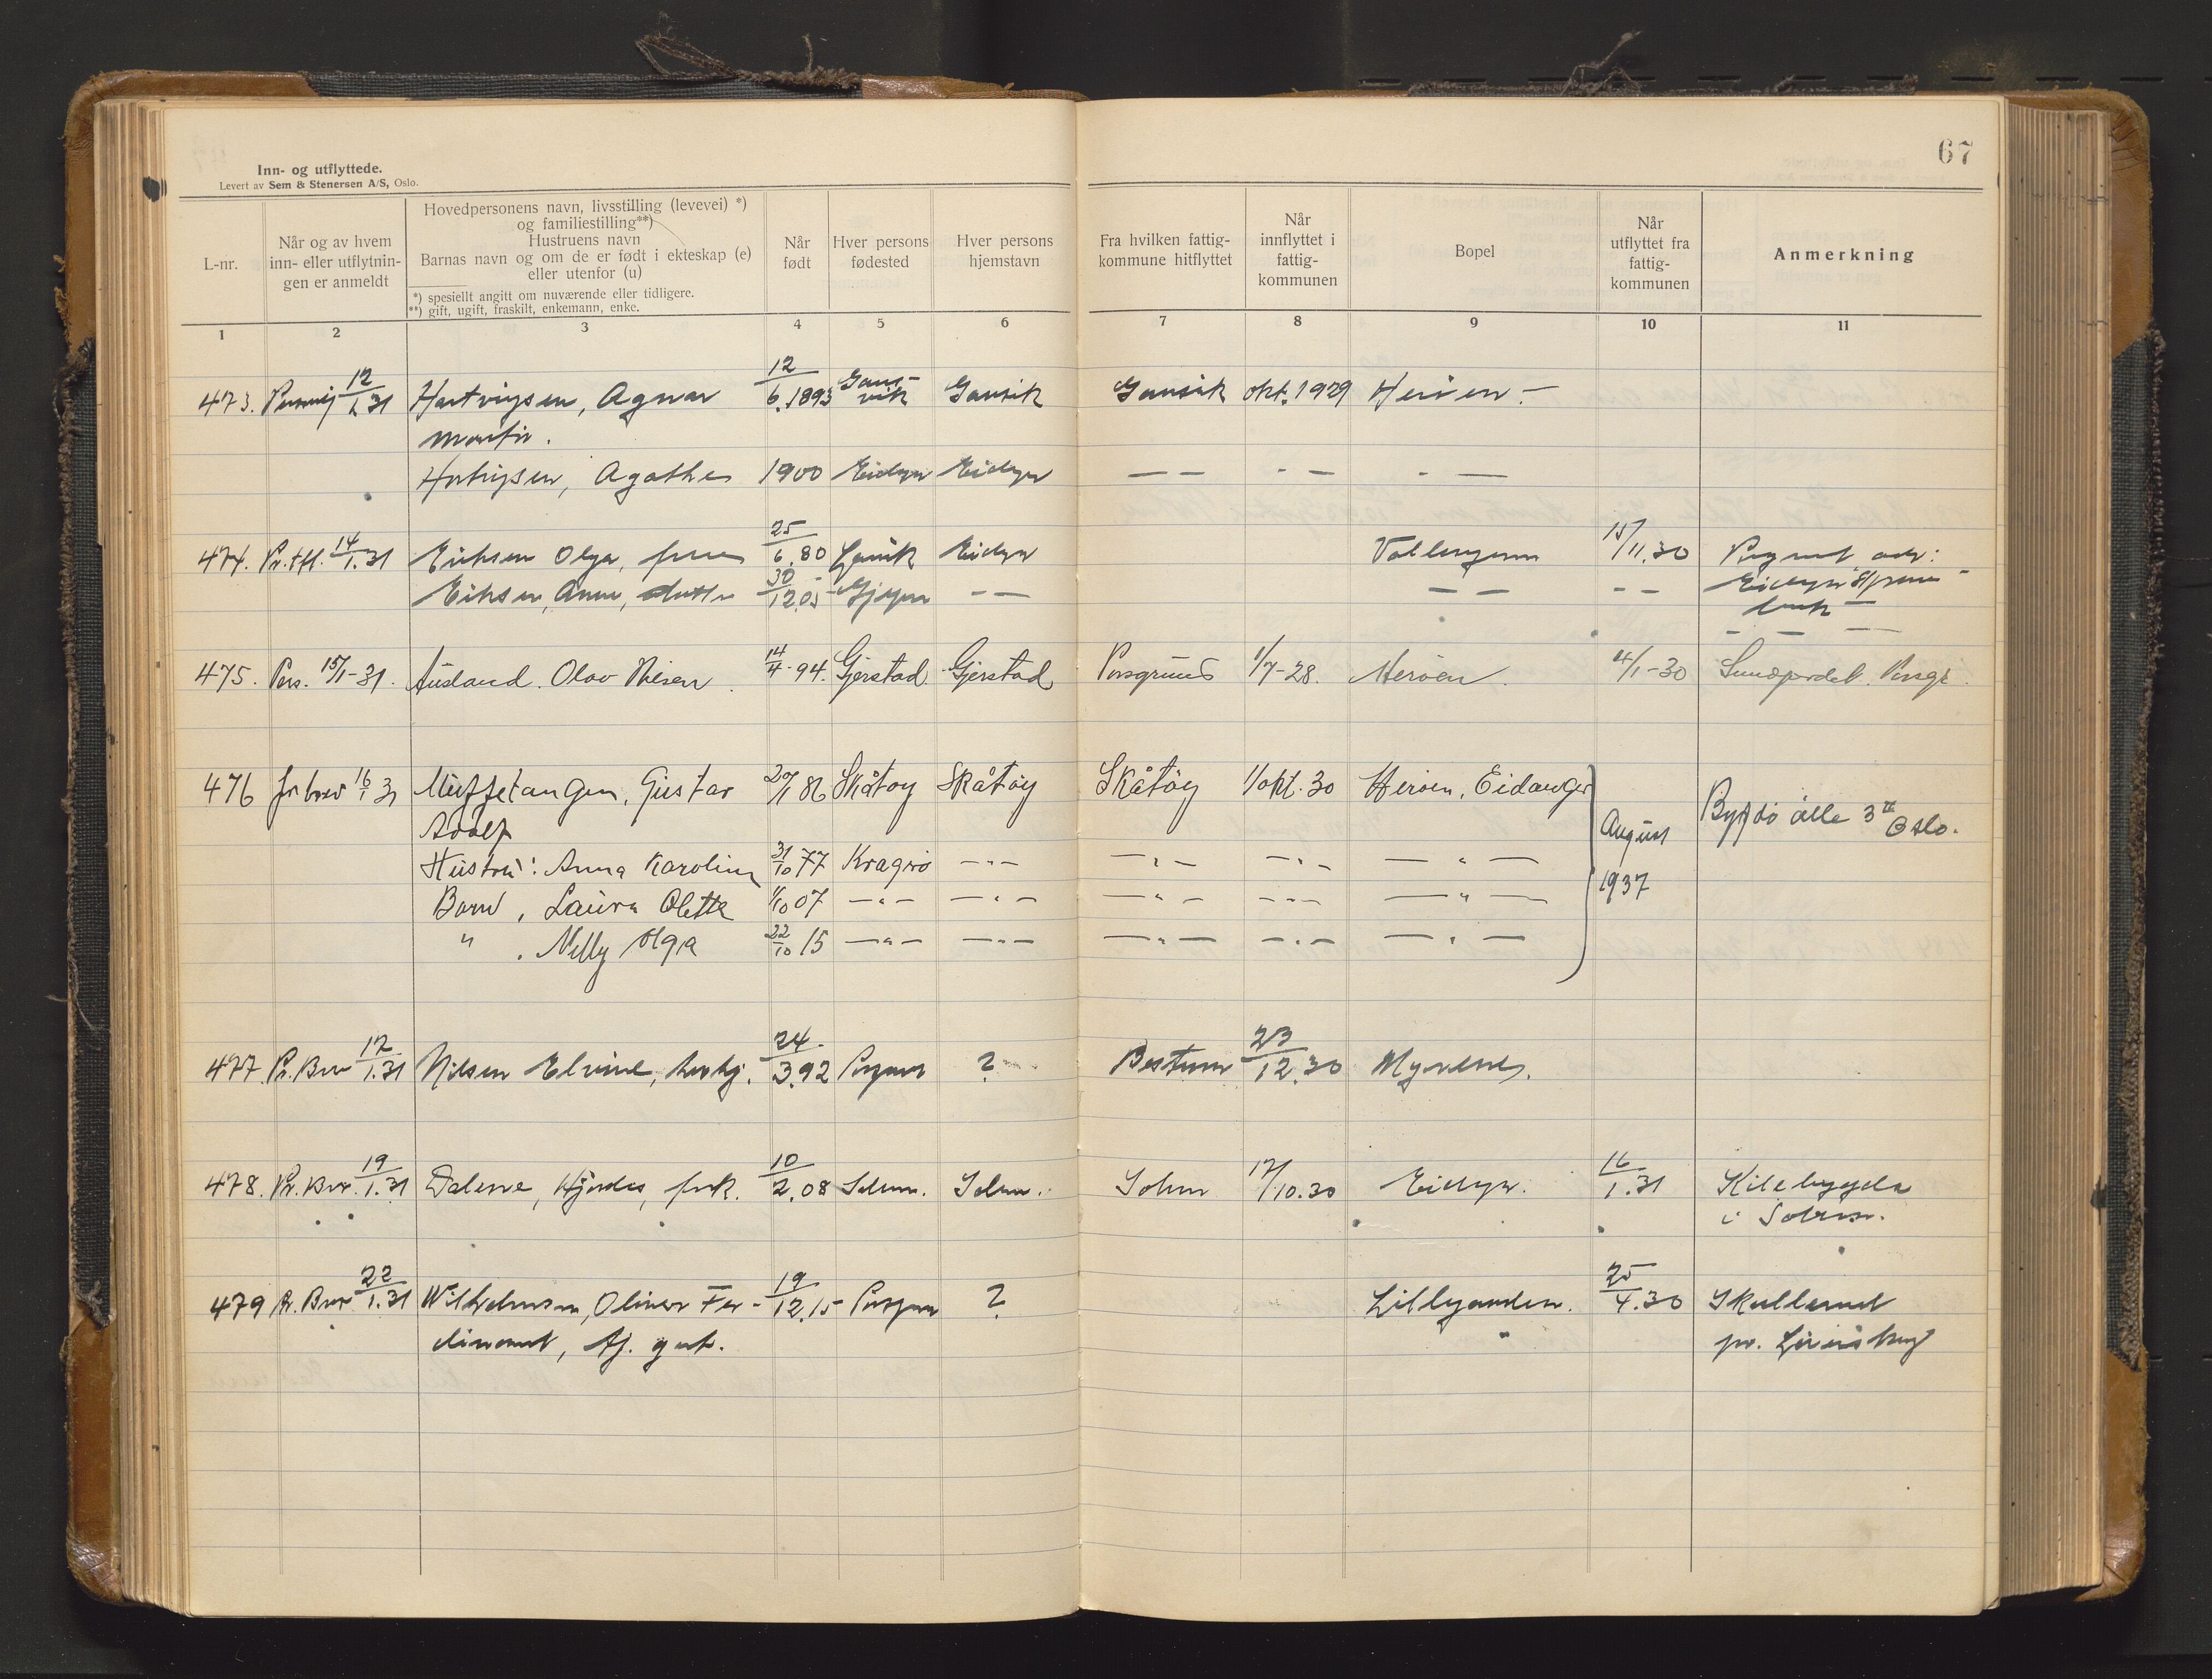 67
Inn- og utflyttede.
Levert av Sem & Stenersen A/S, Oslo.
L-nr.
Når og av hvem
inn- eller utflytnin-
gen er anmeldt
Hovedpersonens navn, livsstilling (levevei) *)
og familiestilling**)
Hustruens navn
Barnas navn og om de er født i ekteskap (e)
eller utenfor (u)
*) spesiellt angitt om nuværende eller tidligere.
**) gift, ugift, fraskilt, enkemann, enke.
Når
født
Hver persons
fødested
Hver persons
hjemstavn
Fra hvilken fattig-
kommune hitflyttet
Når
innflyttet i
fattig-
kommunen
Bopel
Når
utflyttet fra
fattig-
kommunen
Anmerkning
1 2 3 4 5 6 7 8 9 10 11
473. 12/1 31 Hartvigsen, Agnar 12/6.1893 okt. 1929 Herøen -
Hartvigsen, Agathe 1900 Eidgr Eidgr — — - — - —
474. Pr. tlf. 14/1.31 Eriksen Olga, frue 25/6.80 Eidgr 15/11.30
Eriksen, Anne, datter 30/12.05 — — — — - —
475. Pers. 15/1-31. Ausland. Olav Nilsen. 14/4-94. Gjerstad. Gjerstad Porsgrund 1/7-28. Herøen. 4/1-30 Porsgr.
476 pr brev 16/1 31 Müffetangen, Gustav 20/1 86 Skåtøy Skåtøy Skåtøy 1/okt. 30 Herøen, Eidanger August 1937 Bygdø alle 3 Oslo.
Adolf
Hustru: Anna Karoline 31/10 77 Kragrø — " — — " — — " — — " —
Barn, Laura Olette 1/10 07 — " — — " — — " — — " — — " —
" . Nelly Olga 22/10 15 — " — — " — — " — — " — — " —
477. Pr. Brev 17/1.31 Nilsen Elvine, 24/3.92 Porsgr ? Bestum 23/12.30 Myrene.
478. Pr. Brev. 19/1.31 Dalene, Hjørdis, frk. 10/2.08 Solum. Solum. Solum 17/10.30 Eidgr. 16/1.31 Kilebygda
i Solum.
479 Pr. Brev 22/1.31 Wilhelmsen, Oliver Fer- 19/12.15 Porsgr ? Lillegården. 25/4.30
dinand, tj. gut.
pr.